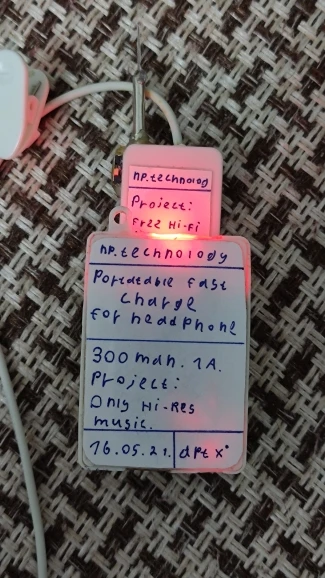 np.technology
Project:
Free Hi-Fi
np.technology
Portadble fast
charge
for headphone
300 mah. 1A.
Project:
Only Hi-Res
music.
16.05.21. dpt x°